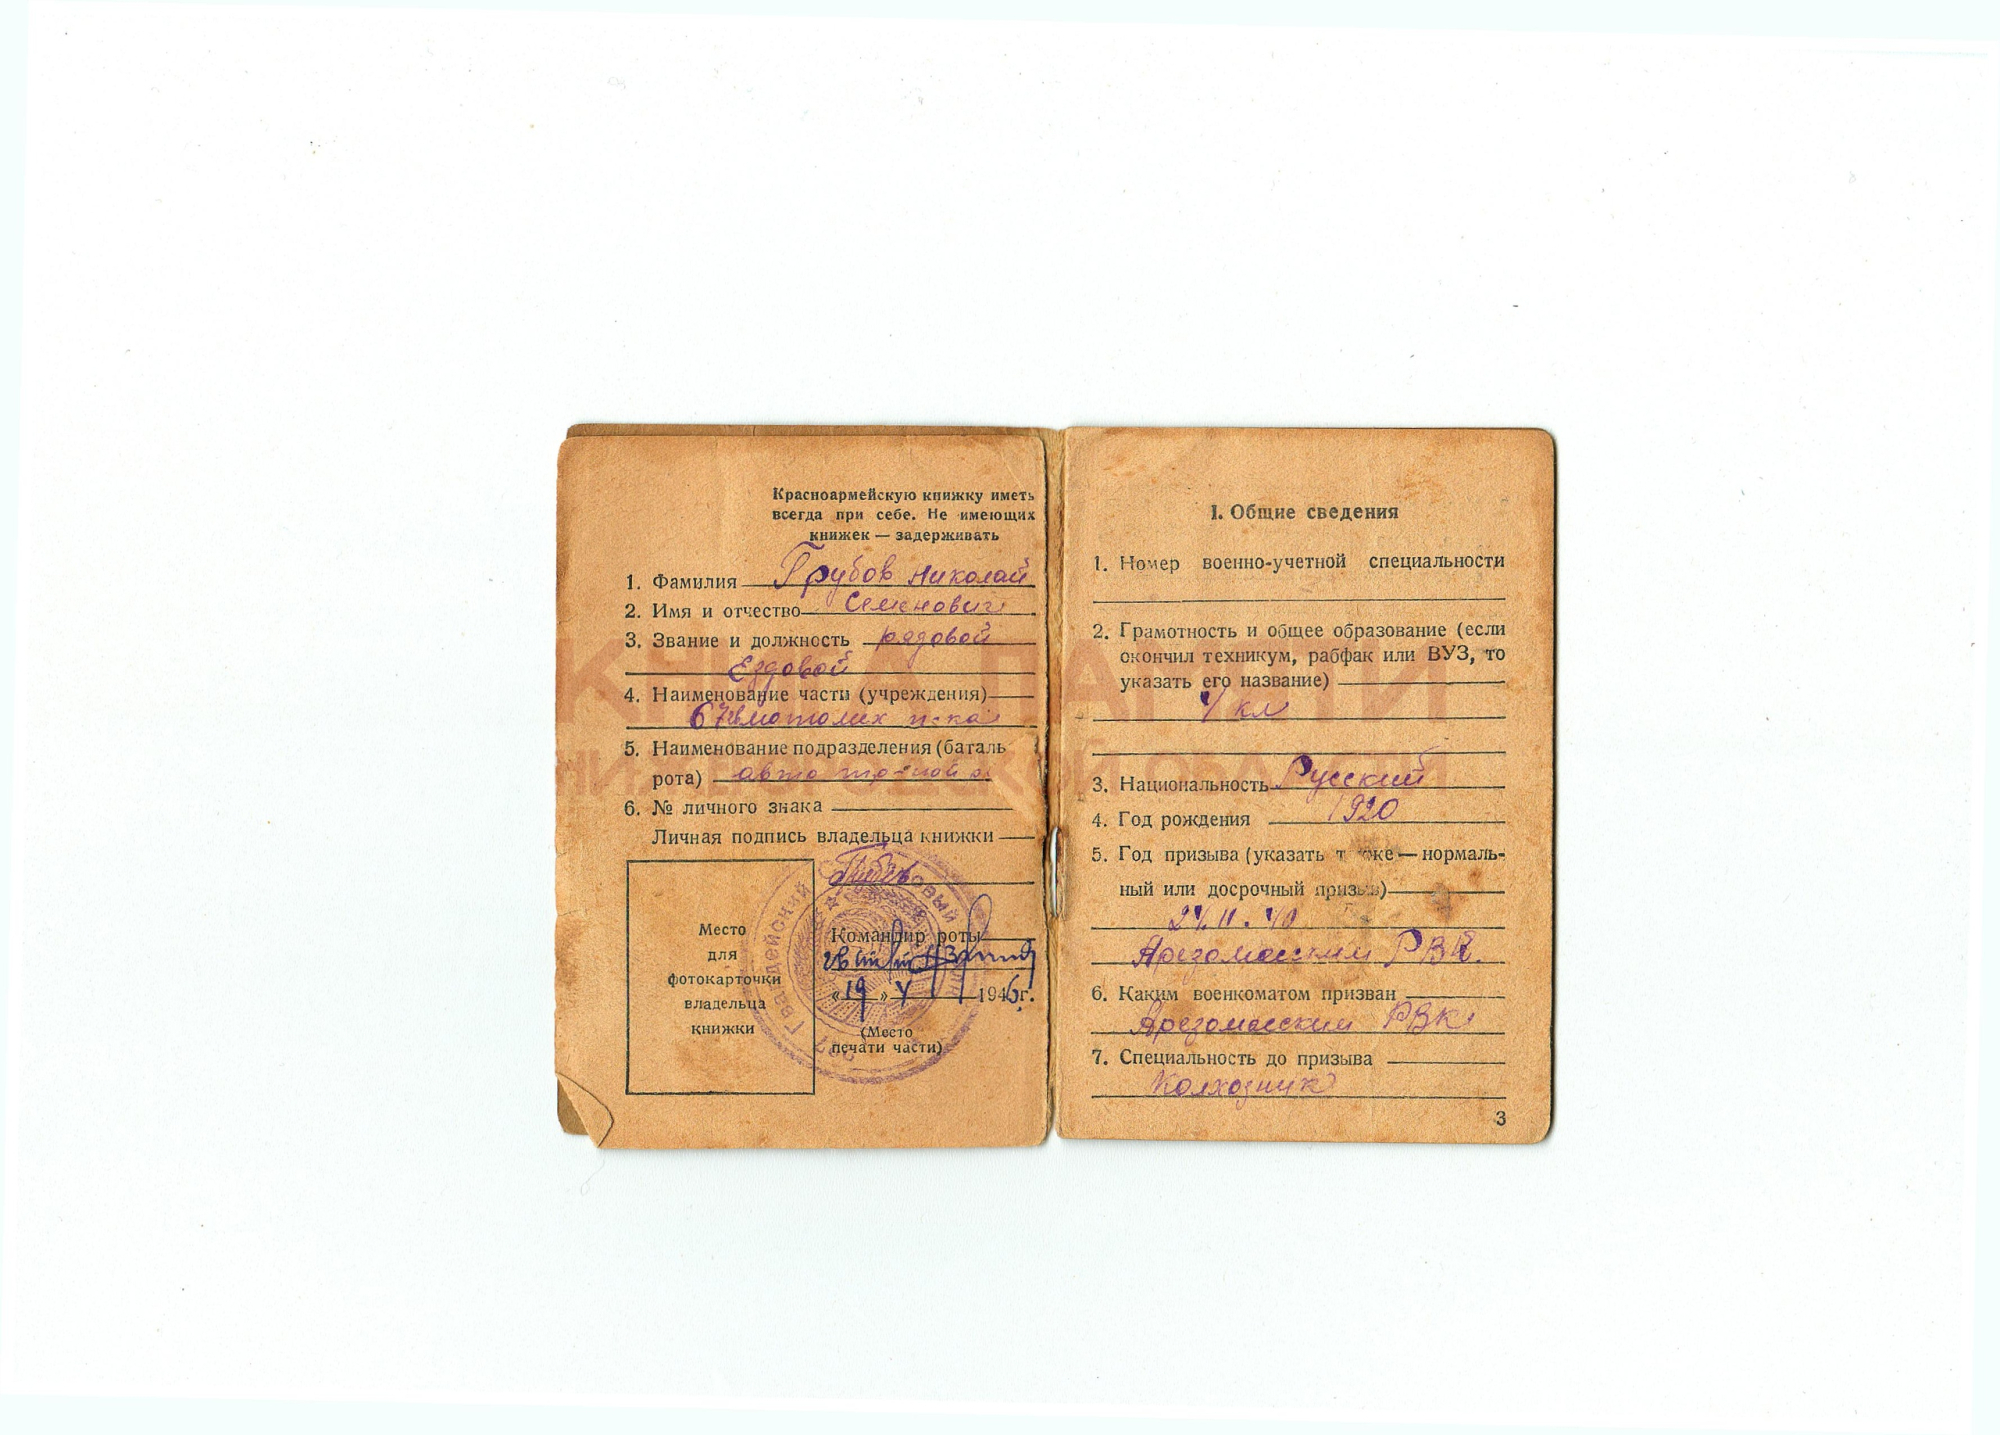 Красноармейскую книжку иметь
всегда при себе. Не имеющих
книжек — задерживать
1. Фамилия Грубов Николай
2. Имя и отчество Семенович
3. Звание и должность рядовой
Ездовой
4. Наименование части (учреждения)
67
5. Наименование подразделения (баталь
рота) авто
6. № личного знака
Личная подпись владельца книжки
Место
для
фотокарточки
владельца
книжки
Гвардейский
Командир роты
гв
«19» V 1946 г.
(Место
печати части)
I. Общие сведения
1. Номер военно-учетной специальности
2. Грамотность и общее образование (если
окончил техникум, рабфак или ВУЗ, то
указать его название)
4 кл
3. Национальность Русский
4. Год рождения 1920
5. Год призыва (указать т же — нормаль-
ный или досрочный призыв)
24.11.40
Арзомасским РВК.
6. Каким военкоматом призван
Арзомасским РВК
7. Специальность до призыва
Колхозник
3
КНИГА ПАМЯТИ
НИЖЕГОРОДСКОЙ ОБЛАСТИ